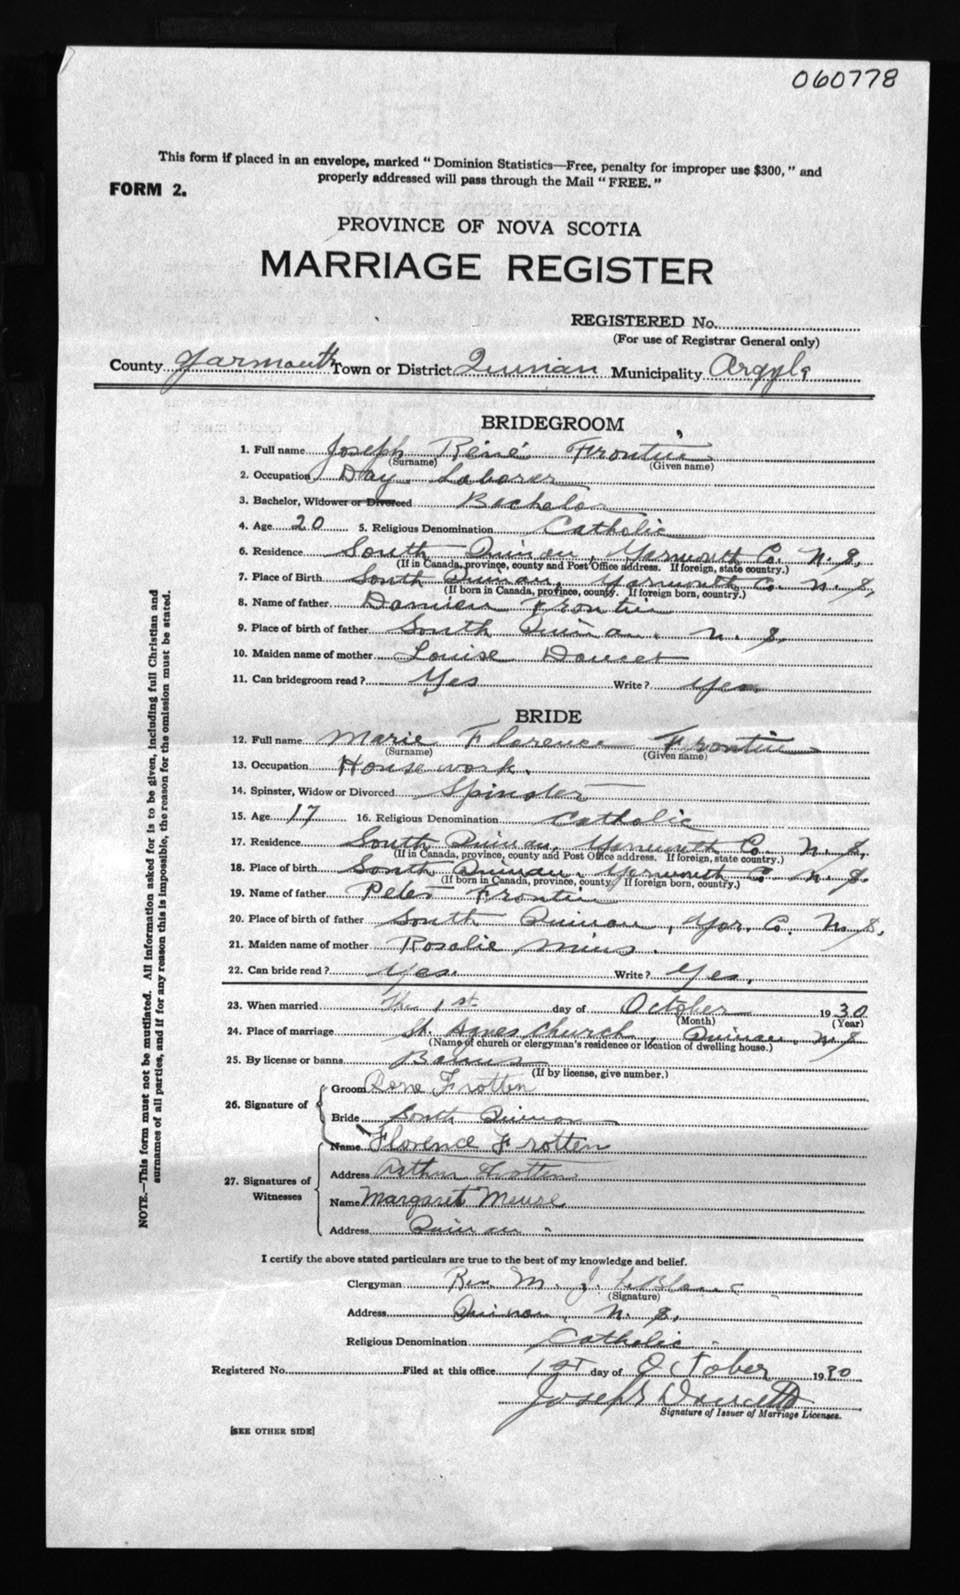 060778
This form if placed in an envelope, marked "Dominion Statistics—Free, penalty for improper use $300," and
properly addressed will pass through the Mail "FREE."
FORM 2.
PROVINCE OF NOVA SCOTIA
MARRIAGE REGISTER
REGISTERED No.
(For use of Registrar General only)
County Yarmouth Town or District Quinan Municipality Argyle
BRIDEGROOM
1. Full name Joseph René Frontin
(Surname) (Given name)
2. Occupation Day Laborer
3. Bachelor, Widower or Divorced Bachelor
4. Age 20 5. Religious Denomination Catholic
6. Residence South Quinan, Yarmouth Co. N. S.
(If in Canada, province, county and Post Office address. If foreign, state country.)
7. Place of Birth South Quinan, Yarmouth Co. N. S.
(If born in Canada, province, county. If foreign born, country.)
8. Name of father Damien Frontin
9. Place of birth of father South Quinan. N. S.
10. Maiden name of mother Louise Doucet
11. Can bridegroom read? Yes Write? Yes.
BRIDE
12. Full name Marie Florence Frontin
(Surname) (Given name)
13. Occupation House work.
14. Spinster, Widow or Divorced Spinster
15. Age 17 16. Religious Denomination Catholic
17. Residence South Quinan, Yarmouth Co. N. S.
(If in Canada, province, county and Post Office address. If foreign, state country.)
18. Place of birth South Quinan. Yarmouth Co N. S.
(If born in Canada, province, county. If foreign born, country.)
19. Name of father Peter Frontin
20. Place of birth of father South Quinan, Yar. Co. N. S.
21. Maiden name of mother Rosalie Mius.
22. Can bride read? Yes. Write? Yes.
23. When married The 1st day of October 1930
(Month) (Year)
24. Place of marriage St. Agnes Church, Quinan, N. S
(Name of church or clergyman's residence or location of dwelling house.)
25. By license or banns Banns
(If by license, give number.)
26. Signature of
Groom Frotten
Bride South Quinan
27. Signatures of
Witnesses
Name Florence Frotten
Address Arthur Frotten
Name Margaret Meuse
Address Quinan "
I certify the above stated particulars are true to the best of my knowledge and belief.
Clergyman Rev. M. J. LeBlanc
(Signature)
Address Quinan, N. S.
Religious Denomination Catholic
Registered No. Filed at this office 1ST day of October 1930
Joseph Doucette
Signature of Issuer of Marriage Licenses.
[SEE OTHER SIDE]
NOTE.—This form must not be mutilated. All information asked for is to be given, including full Christian and
surnames of all parties, and if for any reason this is impossible, the reason for the omission must be stated.